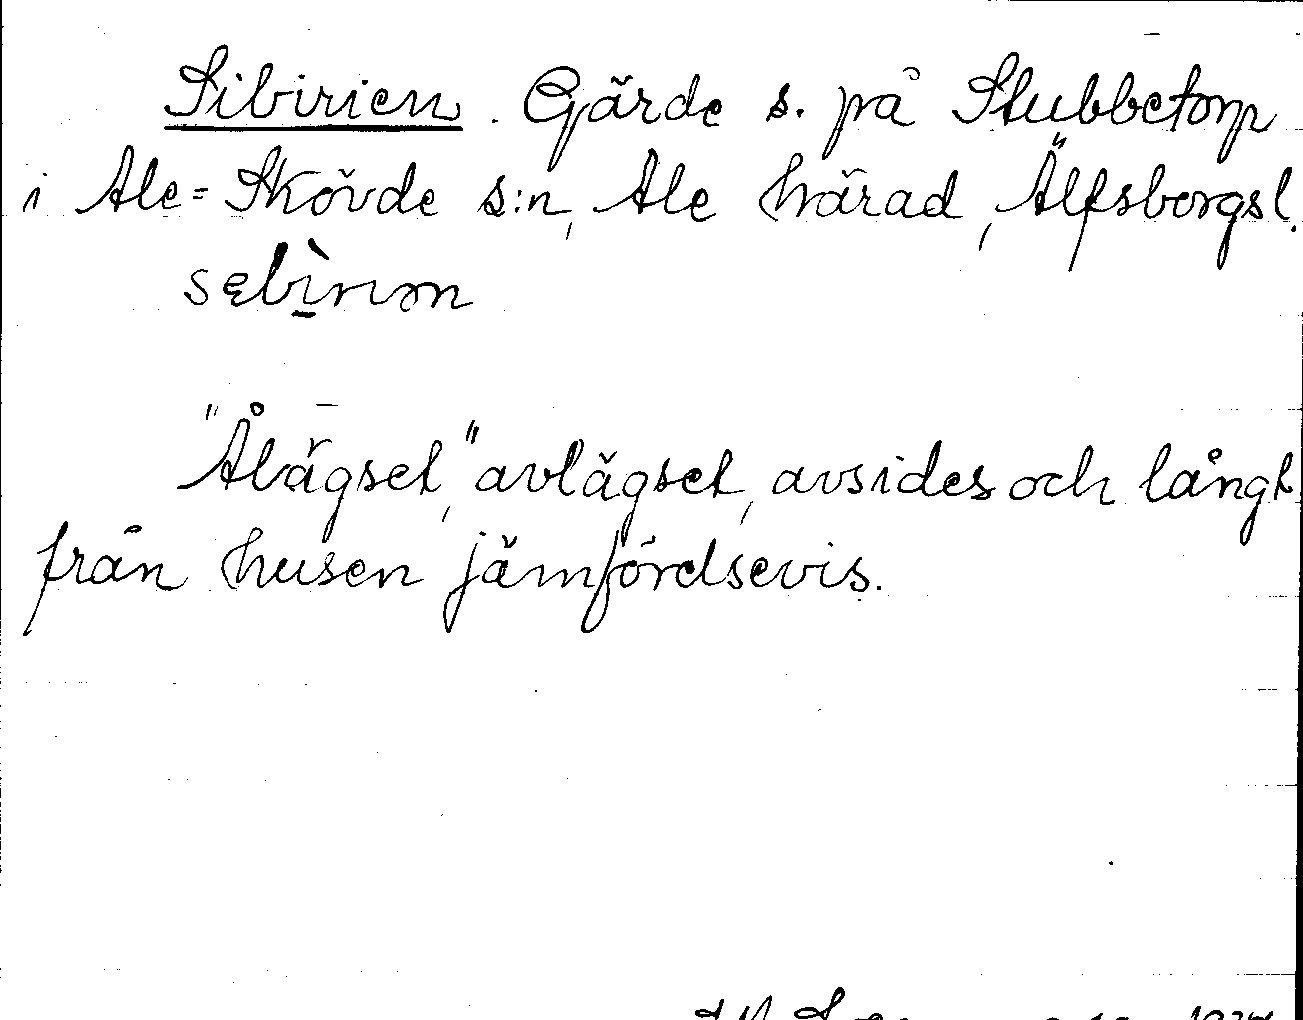 Sibirien. Gärde s. på Stubbetorp
i Ale=Skövde s:n, Ale härad, Älfsborgsl.
"Åvägset," avlägset, avsides och långt
från husen jämförelsevis.